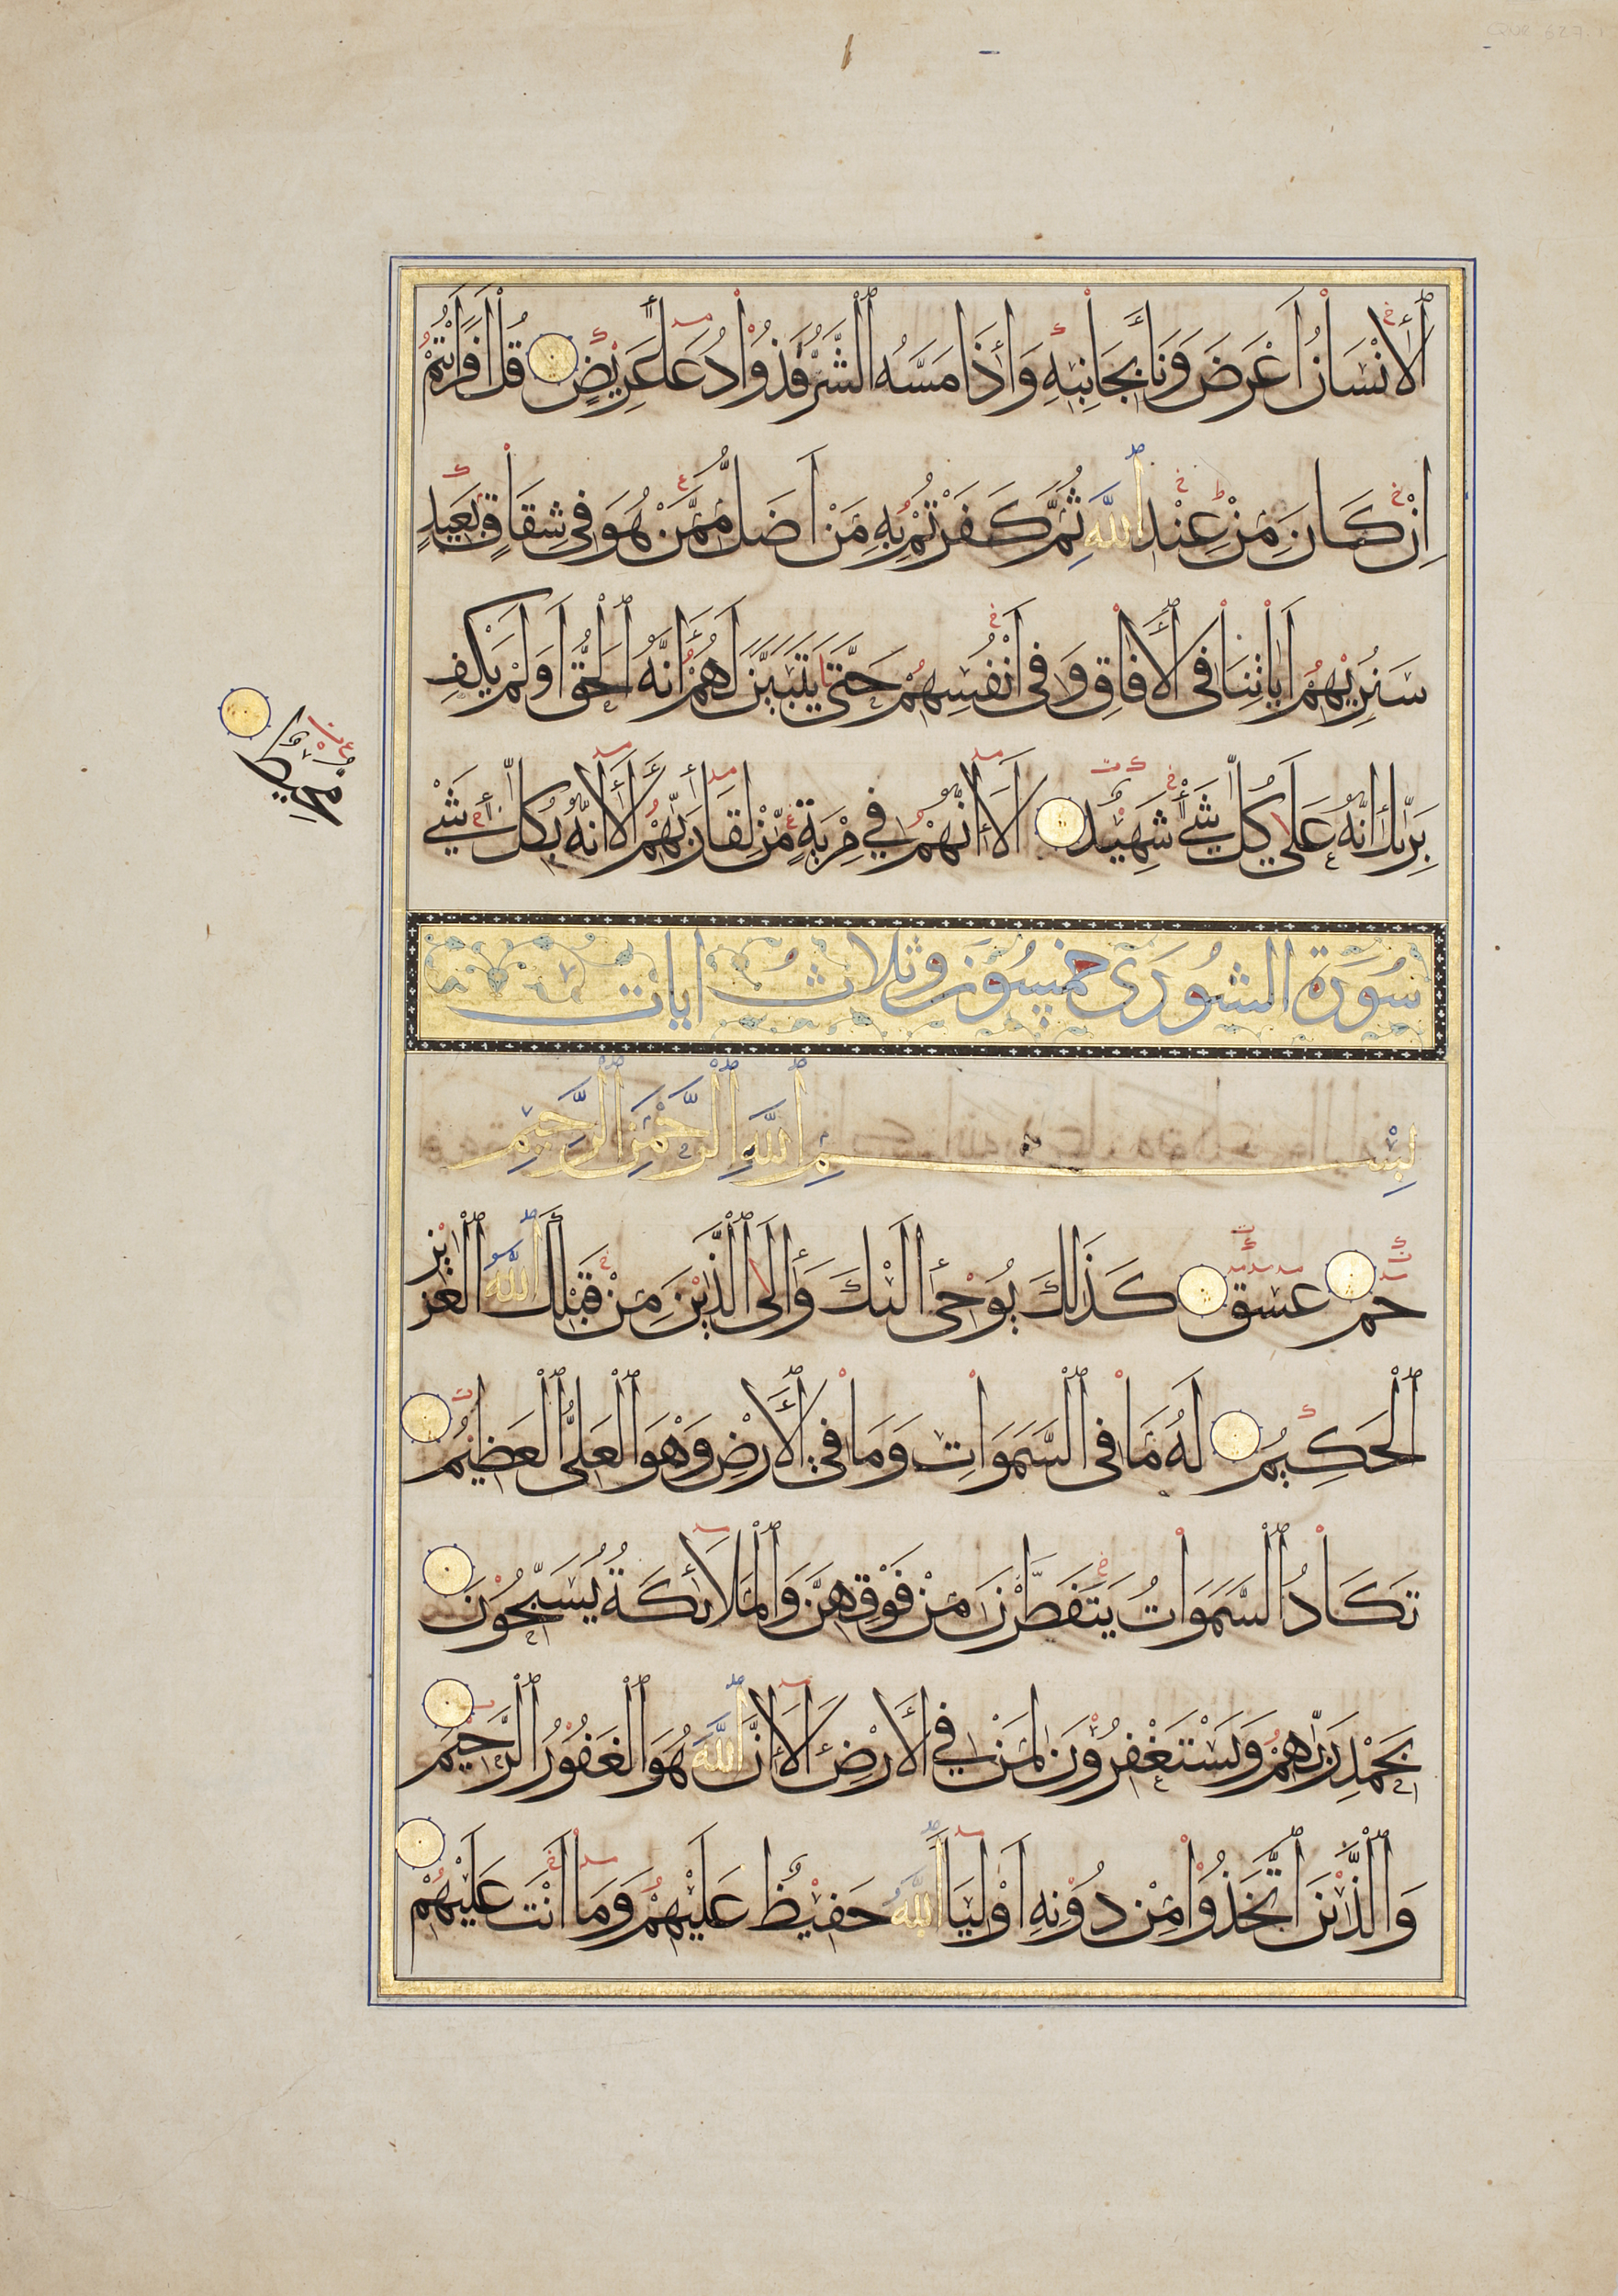 ٱلْإِنْسَانِ أَعْرَضَ وَنَأَىٰ بِجَانِبِهِ وَإِذَا مَسَّهُ ٱلشَّرُّ فَذُوْ دُعَاءٍ عَرِيْضٍ قُلْ أَرَأَيْتُمْ
إِنْ كَانَ مِنْ عِنْدِ ٱللَّهِ ثُمَّ كَفَرْتُمْ بِهِ مَنْ أَضَلُّ مِمَّنْ هُوَ فِي شِقَاقٍ بَعِيْدٍ
سَنُرِيْهِمْ اٰيَاتِنَا فِي ٱلْاٰفَاقِ وَفِي أَنْفُسِهِمْ حَتَّى يَتَبَيَّنَ لَهُمْ أَنَّهُ ٱلْحَقُّ أَوَلَمْ يَكْفِ
بِرَبِّكَ أَنَّهُ عَلَى كُلِّ شَيْءٍ شَهِيْدٌ أَلَا إِنَّهُمْ فِي مِرْيَةٍ مِنْ لِقَاءِ رَبِّهِمْ أَلَا إِنَّهُ بِكُلِّ شَيْءٍ
مُحِيْطٌ
سُوْرَة الشُوْرَى خمسُوْنَ وثلاثُ ايات
بِسْمِ ٱللَّهِ ٱلرَّحْمٰنِ ٱلرَّحِيمِ
حم عسق كَذَلِكَ يُوْحِي إِلَيْكَ وَإِلَى ٱلَّذِيْنَ مِنْ قَبْلِكَ ٱللَّهُ ٱلْعَزِيْزُ
ٱلْحَكِيْمُ لَهُ مَا فِي ٱلسَّمَوَاتِ وَمَا فِي ٱلْأَرْضِ وَهْوَ ٱلْعَلِيُّ ٱلْعَظِيْمُ
تَكَادُ ٱلسَّمَوَاتُ يَتَفَطَّرْنَ مِنْ فَوْقِهِنَّ وَٱلْمَلَائِكَةُ يُسَبِّحُوْنَ
بِحَمْدِ رَبِّهِمْ وَيَسْتَغْفِرُوْنَ لِمَنْ فِي ٱلْأَرْضِ أَلَا إِنَّ ٱللَّهَ هُوَ ٱلْغَفُوْرُ ٱلرَّحِيْمُ
وَٱلَّذِيْنَ ٱتَّخَذُوْا مِنْ دُوْنِهِ أَوْلِيَاءَ ٱللَّهُ حَفِيْظٌ عَلَيْهِمْ وَمَا أَنْتَ عَلَيْهِمْ